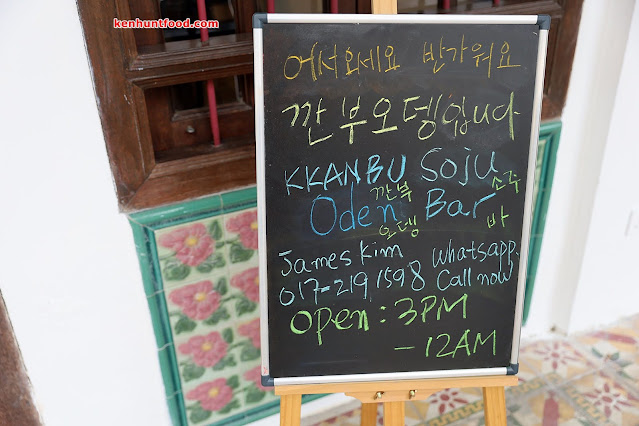 kenhuntfood.com
어서오세요 반가워요
깐부오뎅입니다
KKANBU Soju
깐부 소주
Oden Bar
오뎅 바
James Kim whatsapp
017-219 1598 Call now
Open : 3PM
- 12AM